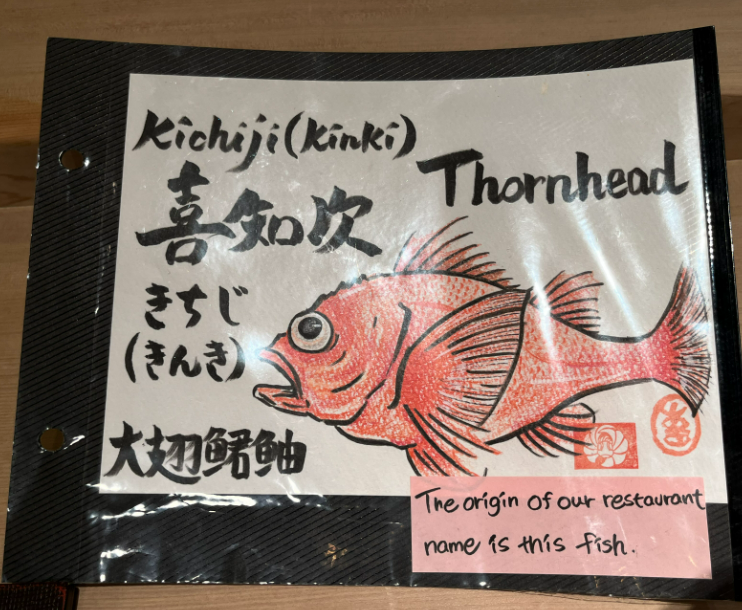 Kichiji(Kinki)
Thornhead
喜知次
きちじ
(きんき)
大翅鮶鮋
The origin of our restaurant
name is this fish.